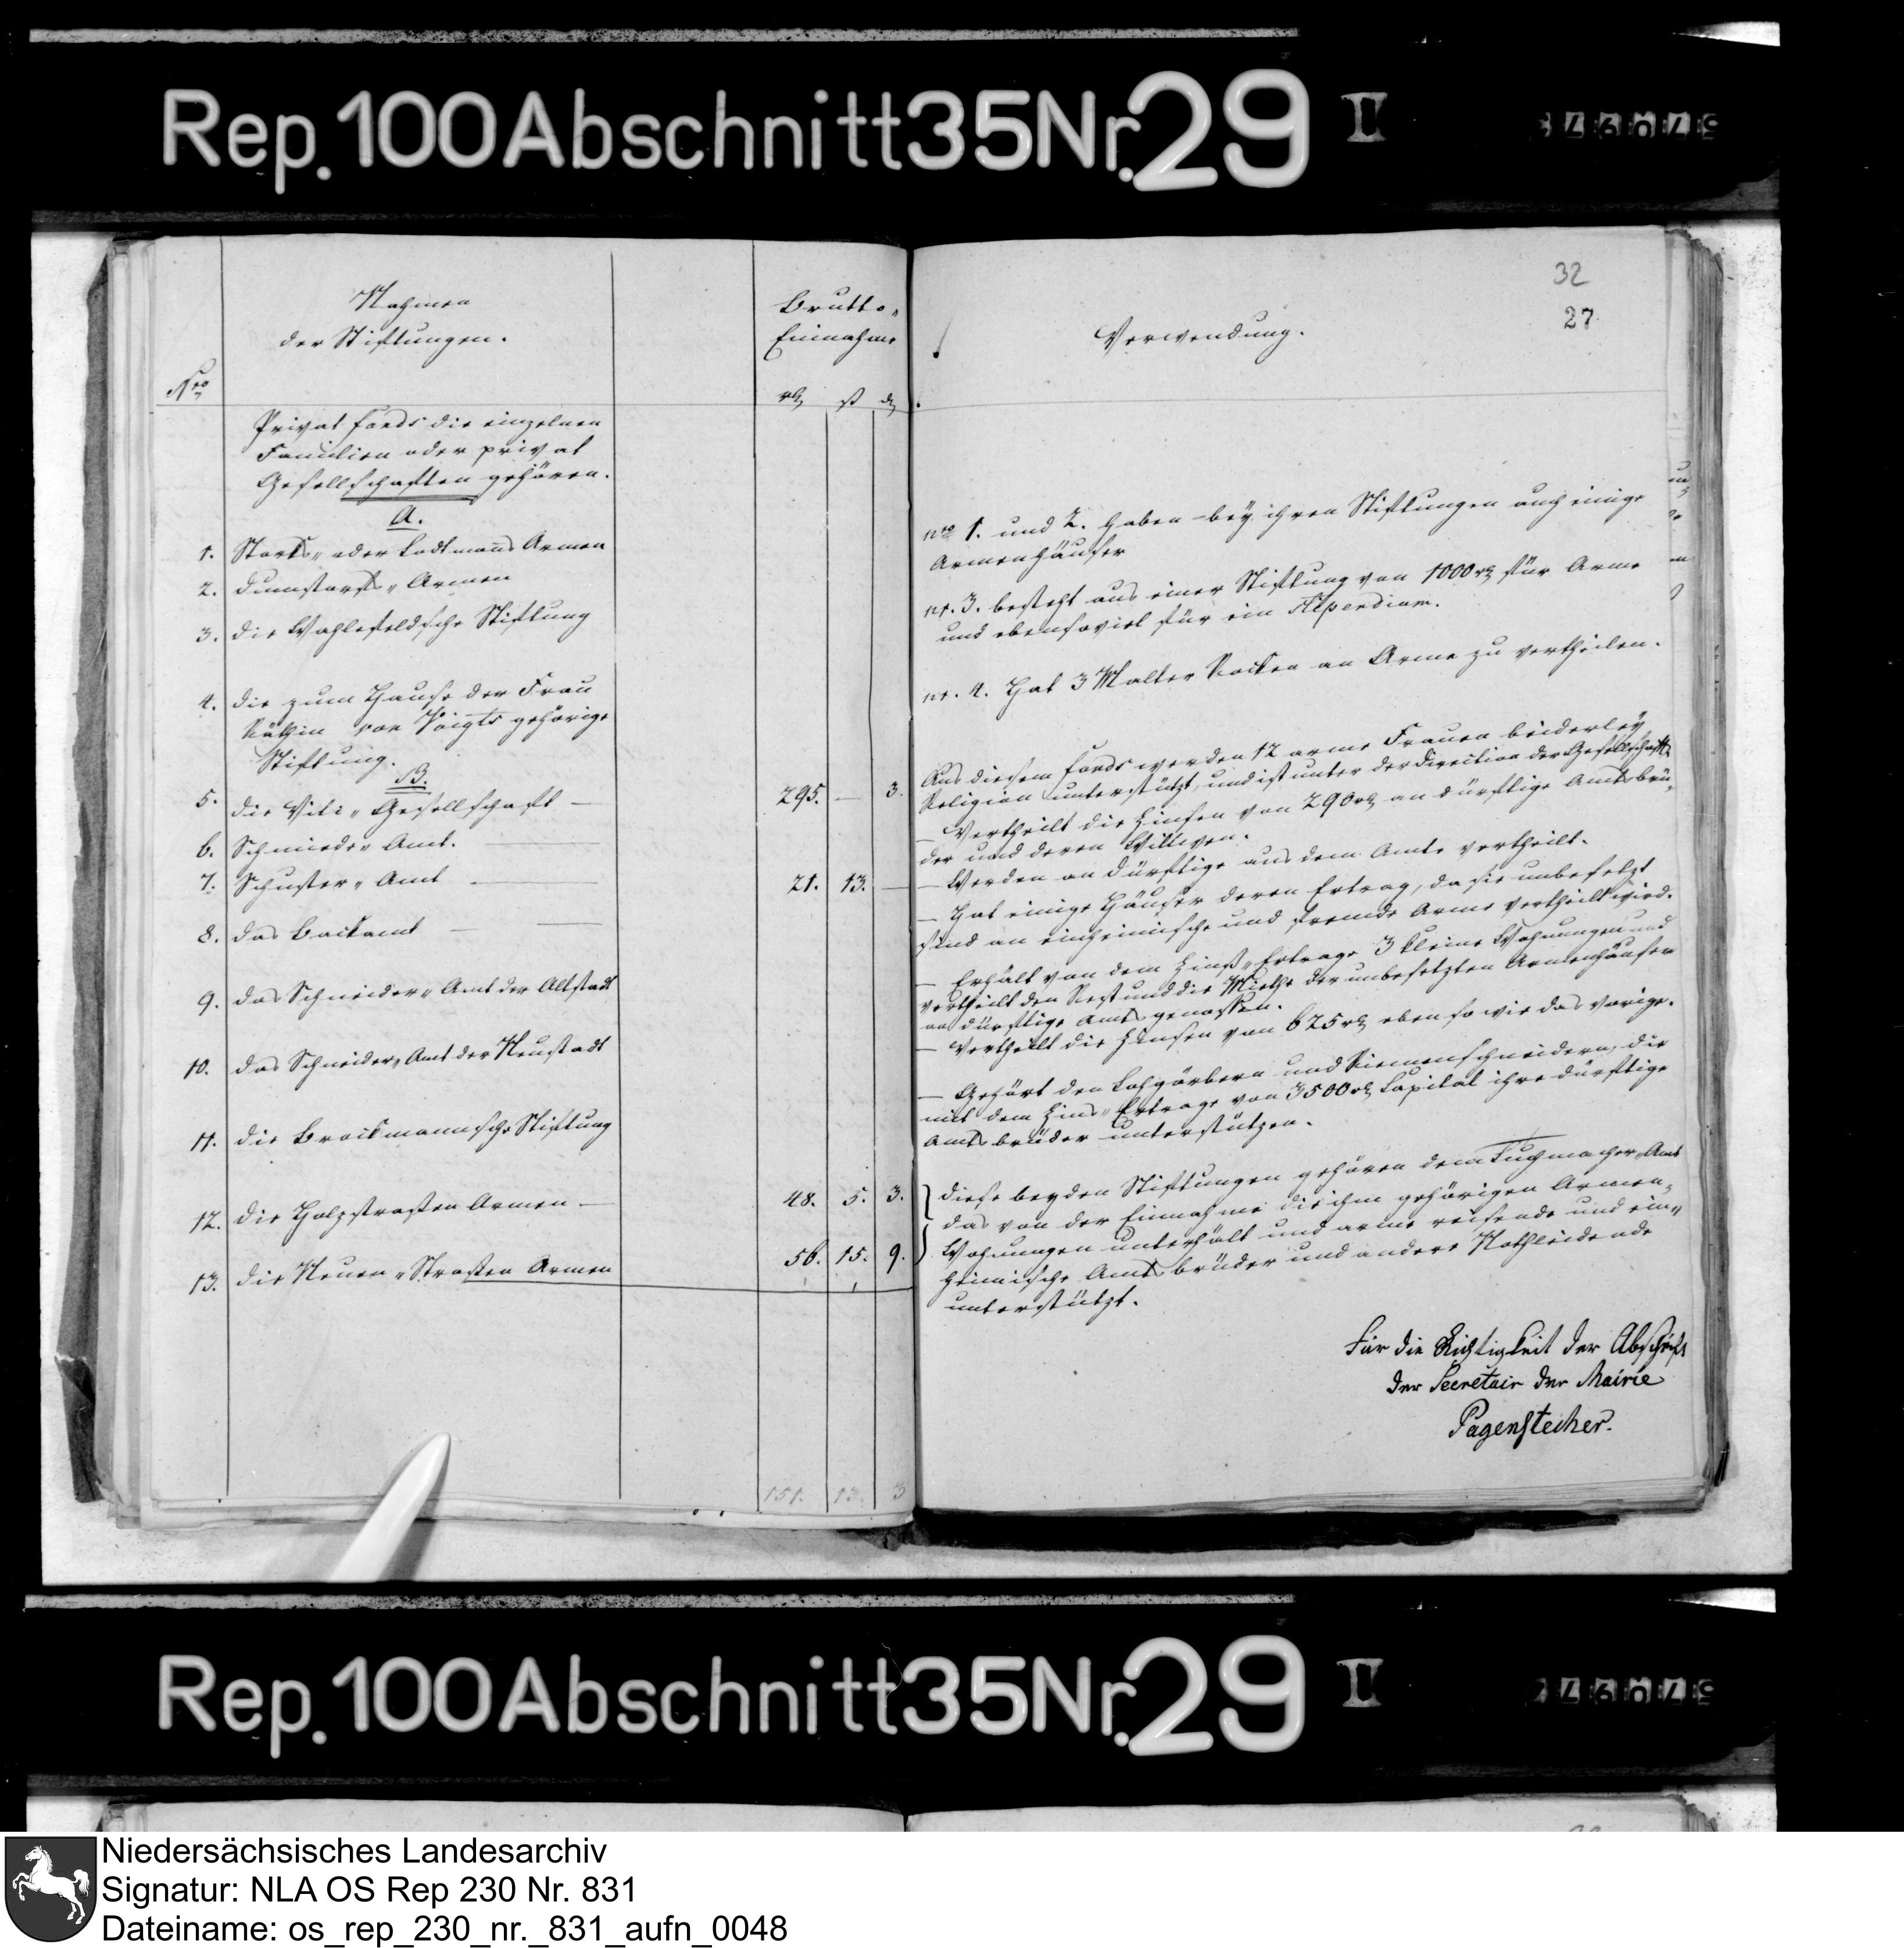 Rep. 100 Abschnitt 35 Nr. 29 II
Nro
Nahmen
der Stiftungen.
Brutto-
Einnahme
rtl ß d
Privat fonds die einzelnen
Familien oder privat
Gesellschaften gehören.
A.
1. Storks- oder Lodtmans Armen
2. Dumstorfs- Armen
3. die Wahlefeldsche Stiftung
4. die zum Hause der Frau
Räthin von Voigts gehörige
Stiftung.
B.
5. die Viti- Gesellschaft — 295. — 3.
6. Schmiede- Amt. —
7. Schuster- Amt — 21. 13. —
8. das Backamt —
9. das Schneider- Amt der Altstadt
10. das Schneider- Amt der Neustadt
11. die Brockmannsche Stiftung
12. die Holzstrassen Armen — 48. 5. 3.
13. die Neuen- Strassen Armen 56. 15. 9.
151. 13. 3
32
27.
Verwendung.
nro 1. und 2. haben bey ihren Stiftungen auch einige
Armenhäuser
nr. 3. besteht aus einer Stiftung von 1000 rtl für Arme
und ebensoviel für ein Stipendium.
nr. 4. Hat 3 Malter Rocken an Arme zu vertheilen.
Aus diesem fonds werden 12 arme Frauen beiderley
Religion unterstützt, und ist unter der Direction der Gesellschaft
— Vertheilt die Zinsen von 290 rtl an dürftige Amtsbrü-
der und deren Wittwen.
— Werden an dürftige aus dem Amte vertheilt.
— Hat einige Häuser deren Ertrag, da sie unbesetzt
sind an einheimische und fremde Arme vertheilt wird.
— Erhält von dem Zinß- Ertrage 3 kleine Wohnungen und
vertheilt den Rest und die Miethe der unbesetzten Armenhäuser
an dürftige Amtsgenossen.
— Vertheilt die Zinsen von 625 rtl eben so wie das vorige.
— Gehört den Lohgärbern und Riemenschneidern, die
mit dem Zins- Ertrage von 3500 rtl Capital ihre dürftige
Amtsbrüder unterstützen.
diese beyden Stiftungen gehören dem Tuchmacher- Amt
das von der Einnahme die ihm gehörigen Armen-
Wohnungen unterhält und arme reisende und ein-
heimische Amtsbrüder und andere Nothleidende
unterstützt.
Für die Richtigkeit der Abschrift
der Secretair der Mairie
Pagenstecher.
Rep. 100 Abschnitt 35 Nr. 29 II
Niedersächsisches Landesarchiv
Signatur: NLA OS Rep 230 Nr. 831
Dateiname: os_rep_230_nr._831_aufn_0048